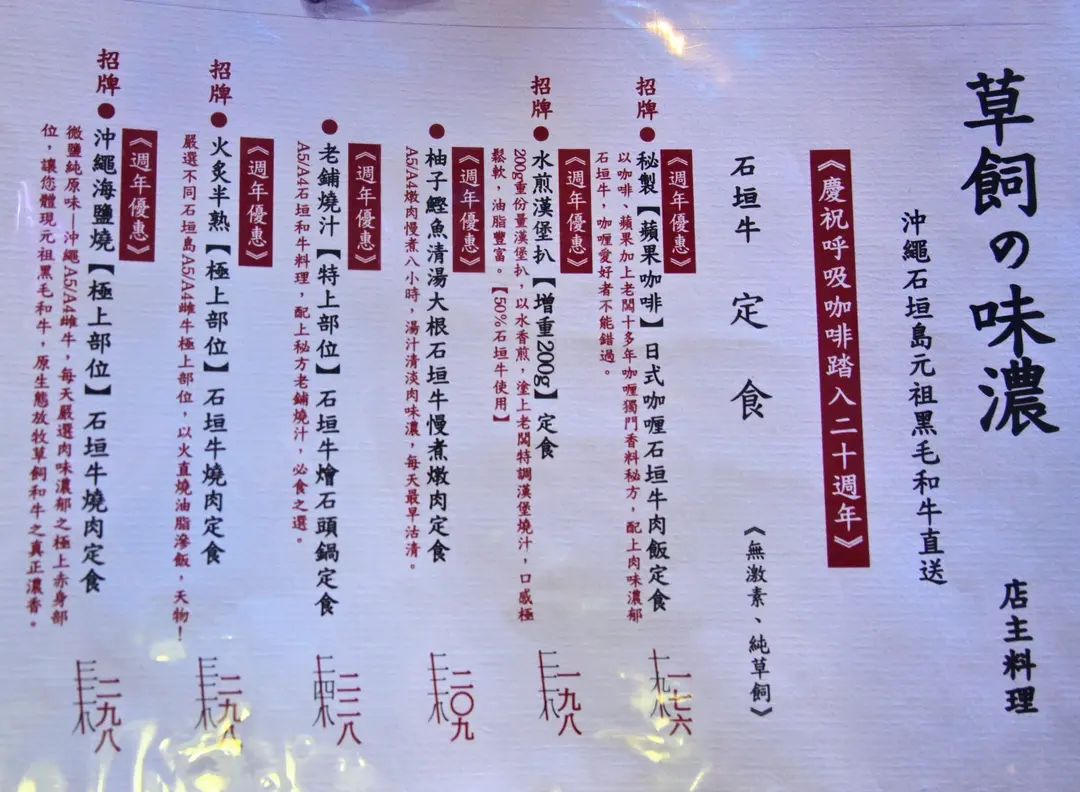 草飼の味濃
店主料理
沖繩石垣島元祖黑毛和牛直送
《慶祝呼吸咖啡踏入二十週年》
石垣牛定食
《無激素、純草飼》
《週年優惠》
招牌●秘製【蘋果咖啡】日式咖喱石垣牛肉飯定食
以咖啡、蘋果加上老闆十多年咖喱獨門香料秘方，配上肉味濃郁
石垣牛，咖喱愛好者不能錯過。
一七六
《週年優惠》
招牌●水煎漢堡扒【增重200g】定食
200g重份量漢堡扒，以水香煎，塗上老闆特調漢堡燒汁，口感極
鬆軟，油脂豐富。【50%石垣牛使用】
一九八
《週年優惠》
●柚子鰹魚清湯大根石垣牛慢煮燉肉定食
A5/A4燉肉慢煮八小時，湯汁清淡肉味濃，每天最早沽清。
二〇九
《週年優惠》
●老鋪燒汁【特上部位】石垣牛燴石頭鍋定食
A5/A4石垣和牛料理，配上秘方老鋪燒汁，必食之選。
二二八
《週年優惠》
招牌●火炙半熟【極上部位】石垣牛燒肉定食
嚴選不同石垣島A5/A4雌牛極上部位，以火直燒油脂滲飯，天物！
二九八
《週年優惠》
招牌●沖繩海鹽燒【極上部位】石垣牛燒肉定食
微鹽純原味—沖繩A5/A4雌牛，每天嚴選肉味濃郁之極上赤身部
位，讓您體現元祖黑毛和牛，原生態放牧草飼和牛之真正濃香。
二九八